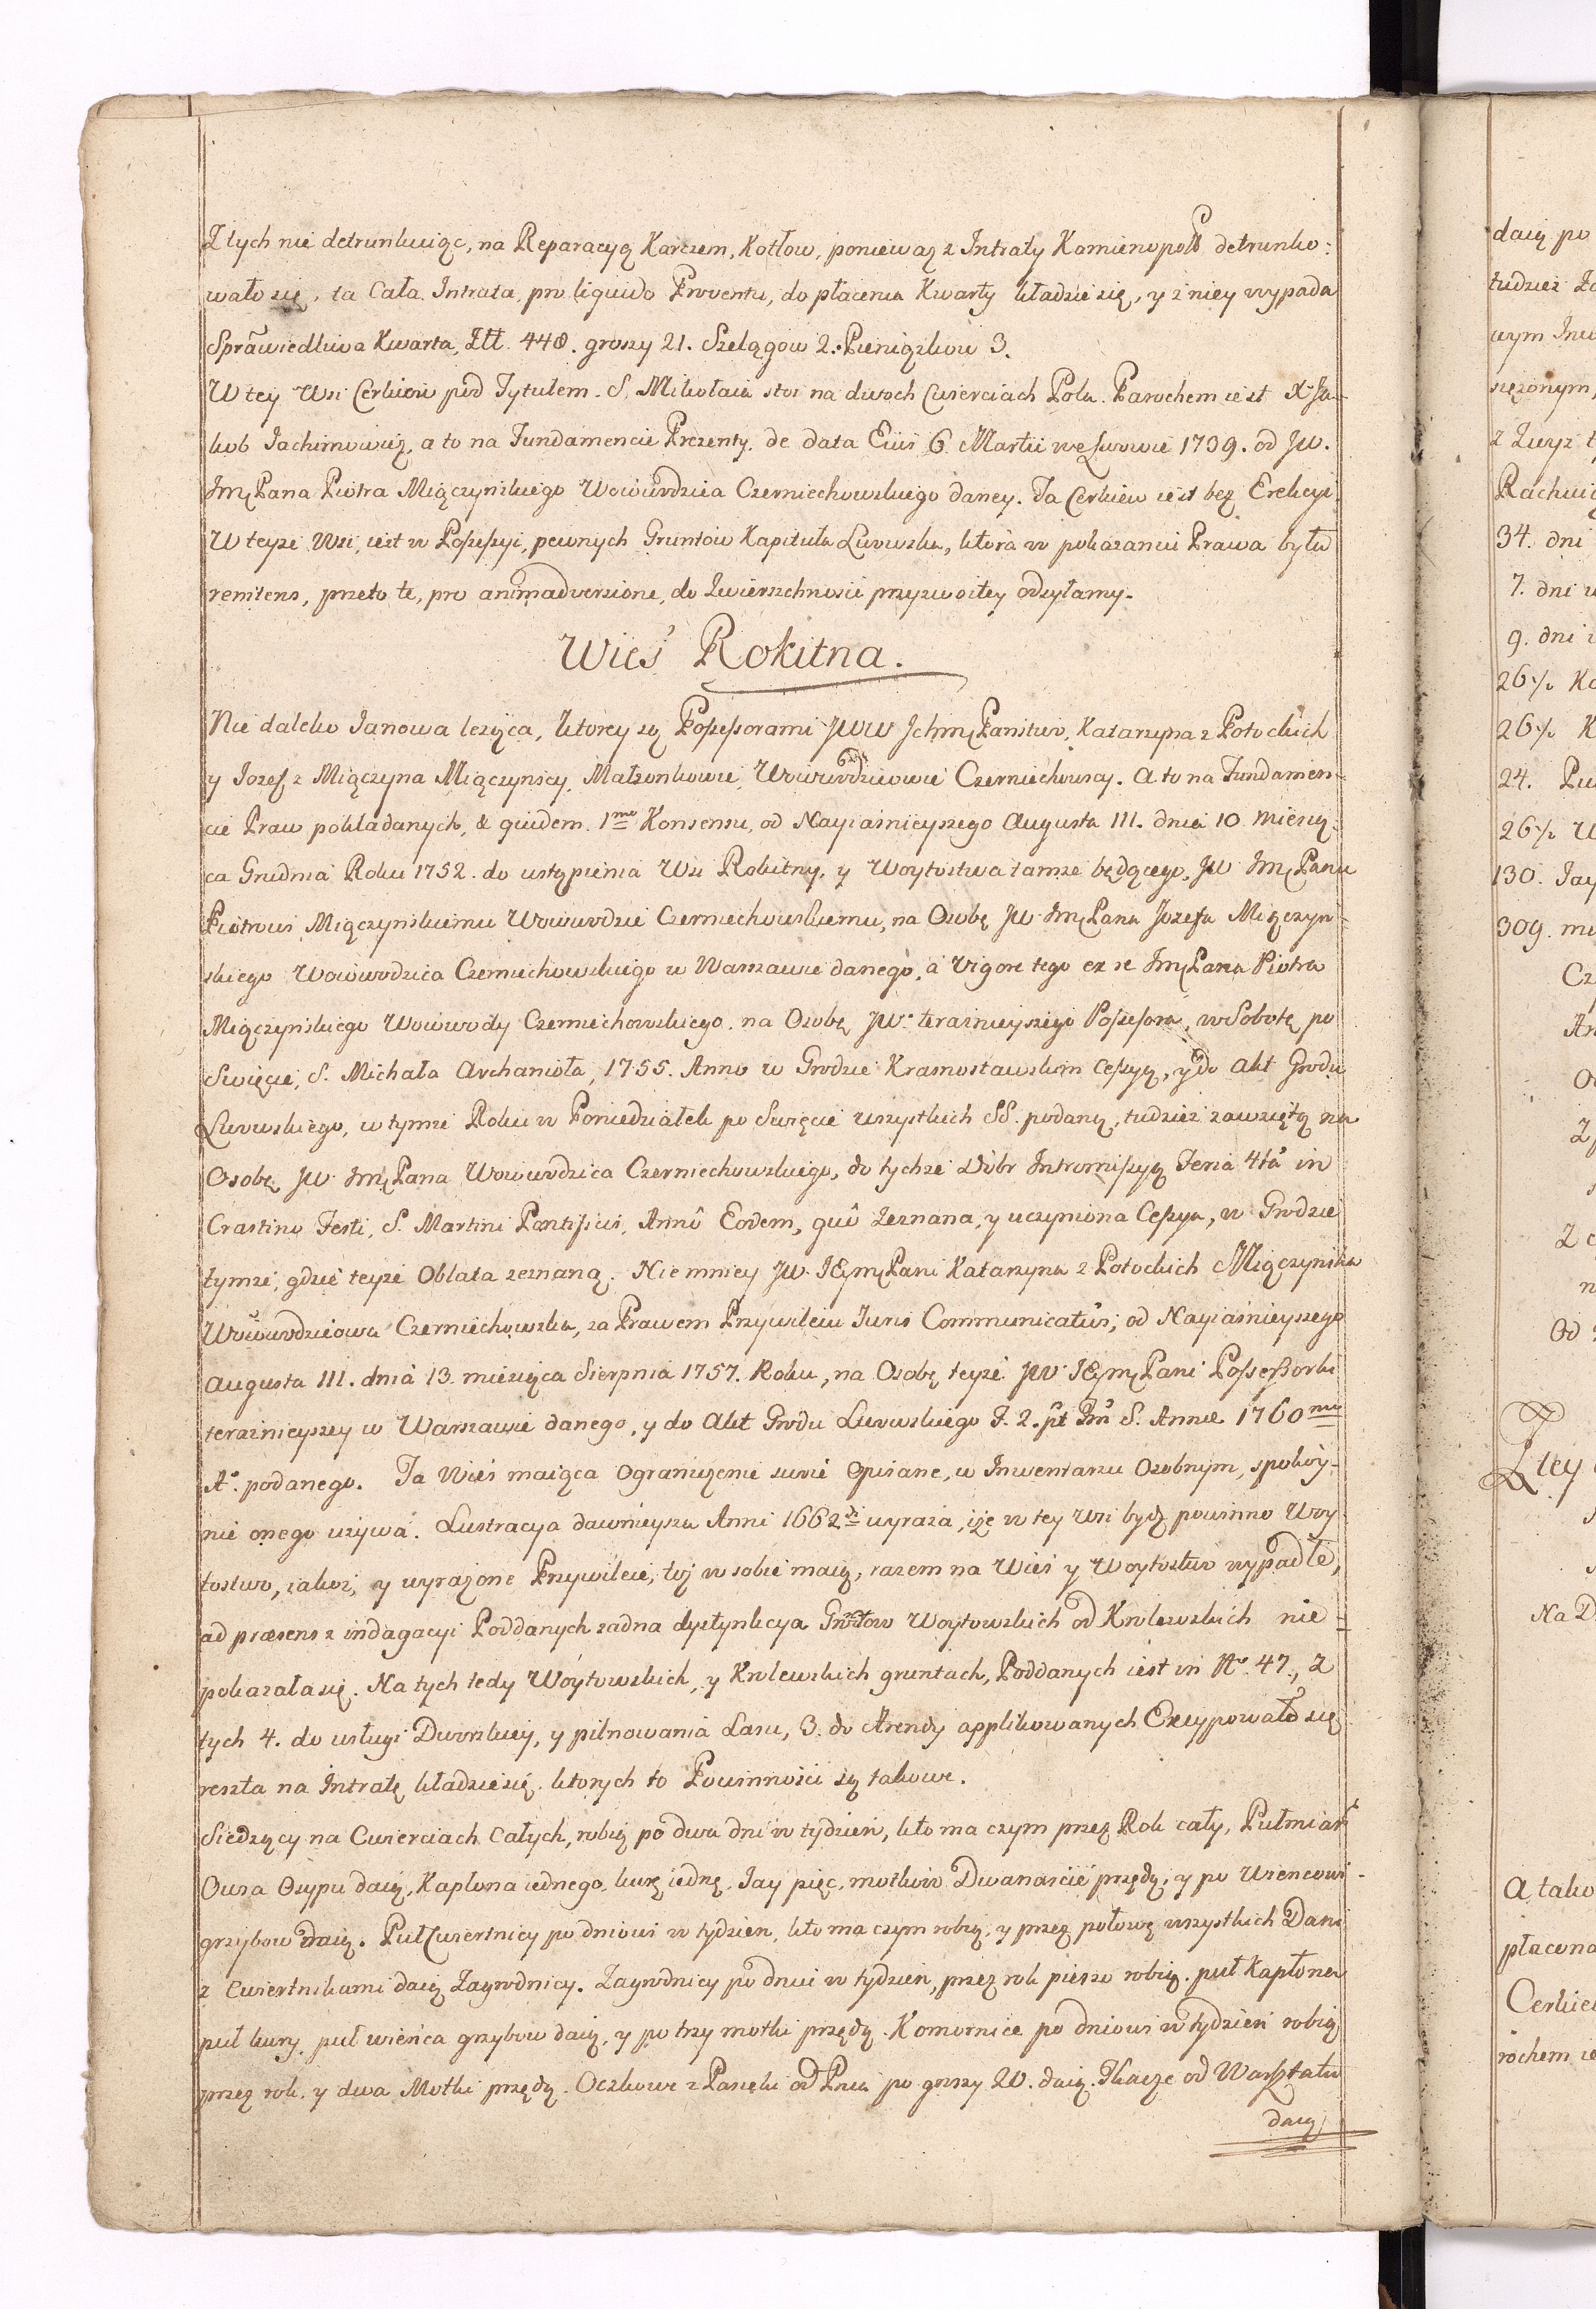 Z tych nie detrunkuiąc, na Reparacyą Karczem, Kotłow, poniewaz z Intraty Kamienopolß detrunko:
wało się, ta Cała Intrata, pro liquido Proventu, do płacenia Kwarty kładzie się, y z niey wypada
Sprawiedliwa Kwarta, Złł. 448. groszy 21. Szelągow 2. Pieniązkow 3.
W tey Wsi Cerkiew pod Tytulem S. Mikołaia stoi na dwoch Cwierciach Pola. Parochem iest X. Ja-
kob Jachimowicz, a to na Fundamencie Prezenty. de data Eius 6 Martii we Lwowie 1739. od JW.
Jmć Pana Piotra Miączyńskiego Woiewodzica Czerniechowskiego daney. Ta Cerkiew iest bez Erekcyi.
W teyze Wsi, iest w Poseßyi, pewnych Gruntow Kapituła Lwowska, ktora w pokazaniu Prawa była
renitens, przeto te, pro animadversione, do Zwierzchnosci przyzwoitey odsyłamy.
Wieś Rokitna.
Nie daleko Janowa leząca, ktorey są Poseßorami JWW Ichmć Państwo, Katarzyna z Potockich
y Jozef z Miączyna Miączynscy, Małzonkowie, Woiewodzicowie Czerniechowscy. a to na Fundamen-
cie Praw pokładanych, & quidem. 1mo Konsensu, od Nayiasnieyszego Augusta III. dnia 10 miesią-
ca Grudnia Roku 1752. do ustąpienia Wsi Rokitny, y Woytostwa tamze będącego, JW Jmć Panu
Piotrowi Miączynskiemu Woiewodzie Czerniechowskiemu, na Osobę JW Jmć Pana Jozefa Miączyn-
skiego Woiewodzica Czerniechowskiego w Warszawie danego, a vigore tego ex re Jmć Pana Piotra
Miączyńskiego Woiewody Czerniechowskiego, na Osobę JW. teraznieyszego Poseßora, w Sobotę po
Swięcie, S. Michała Archanioła, 1755. Anno w Grodzie Krasnostawskim Ceßyą, y do Akt Grodu
Lwowskiego, w tymze Roku w Poniedziałek po Swięcie wszystkich SS. podaną, tudziez zawziętą na
Osobę JW Jmć Pana Woiewodzica Czerniechowskiego, do tychze Dobr Intromißyą Feria 4ta in
Crastino Festi, S. Martini Pontificis, Annô Eodem, quô zeznana, y uczyniona Ceßya, w Grodzie
tymze, gdzie teyze Oblata zeznaną. Niemniey JW. JEymć Pani Katarzyna z Potockich Miączyńska
Woiewodzicowa Czerniechowska, za Prawem Przywileiu Iuris Communicativi, od Nayiaśnieyszego
Augusta III. dnia 13. miesiąca Sierpnia 1757. Roku, na Osobę teyze JW JEymć Pani Poseßorki
teraznieyszey w Warszawie danego, y do Akt Grodu Lwowskiego F. 2. pt Fm S. Annæ 1760mo
Ao. podanego. Ta Wieś maiąca Ograniczenie swoie Opisane, w Inwentarzu Osobnym, spokoy-
nie onego uzywa. Lustracya dawnieysza Anni 1662di wyraza, ize w tey Wsi bydz powinno Woy-
tostwo, iakoz, y wyrazone Przywileie, toz w sobie maią, razem na Wieś y Woytostwo wypadłe,
ad præsens z indagacyi Poddanych zadna dystynkcya Gruntow Woytowskich od Krolewskich nie=
pokazała się. Na tych tedy Wóytowskich, y Krolewskich gruntach, Poddanych iest in No. 47., z
tych 4. do usługi Dworskiey, y pilnowania Lasu, 3. do Arendy applikowanych Excypowało się
reszta na Intratę kładzie się, ktorych to Powinnosci są takowe.
Siedzący na Cwierciach Całych, robią po dwa dni w tydzień, kto ma czym przez Rok cały, Pułmiar
Owsa Osypu daią, Kapłona iednego, kurę iednę, Jay pięc, motkow Dwanascie przędzy, y po Wiencowi
grzybow daią. PułCwiertnicy po dniowi w tydzien, kto ma czym robią, y przez połowę wszystkich Dani
z Cwiertnikami daią Zagrodnicy. Zagrodnicy po dniu w tydzień, przez rok pieszo robią. puł Kapłona
puł kury, puł wieńca grzybow daią, y po trzy motki przędzy. Komornice po dniowi w tydzień robią
przez rok, y dwa Motki przędzy. Oczkowe z Pasieki od Pnia po groszy 20. daią. Tkacze od Warsztatu
daią
daią po
tudziez
wym
z
34. dni
7. dni
9. dni
26½
26½ K
24.
26½ W
130. Jay
309.
Cz
Od
Z tey
Na D
A tako
płacona
Cerkiew
rochem ie